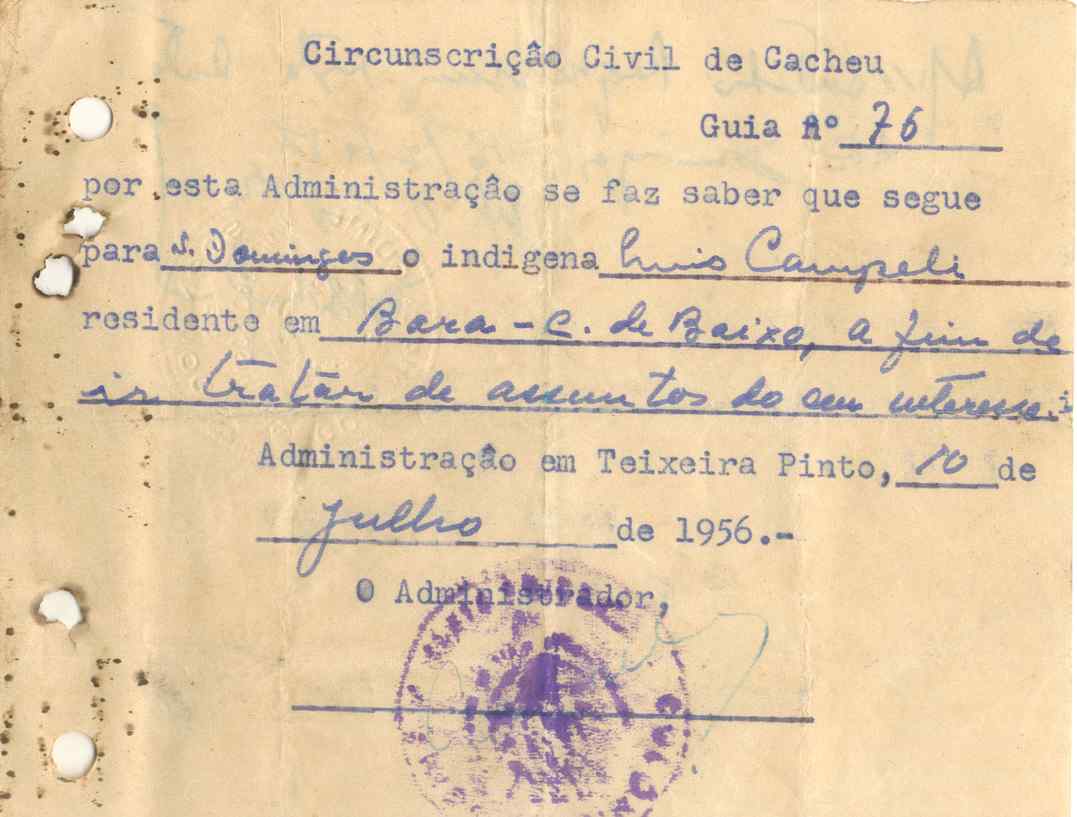 Circunscrição Civil de Cacheu
Guia nº 76
por esta Administração se faz saber que segue
para S. Domingos o indigena Luis Campeli
residente em Bara - C. de Baixo, a fim de
ir tratar de assuntos do seu interesse.
Administração em Teixeira Pinto, 10 de
Julho de 1956.-
O Administrador,